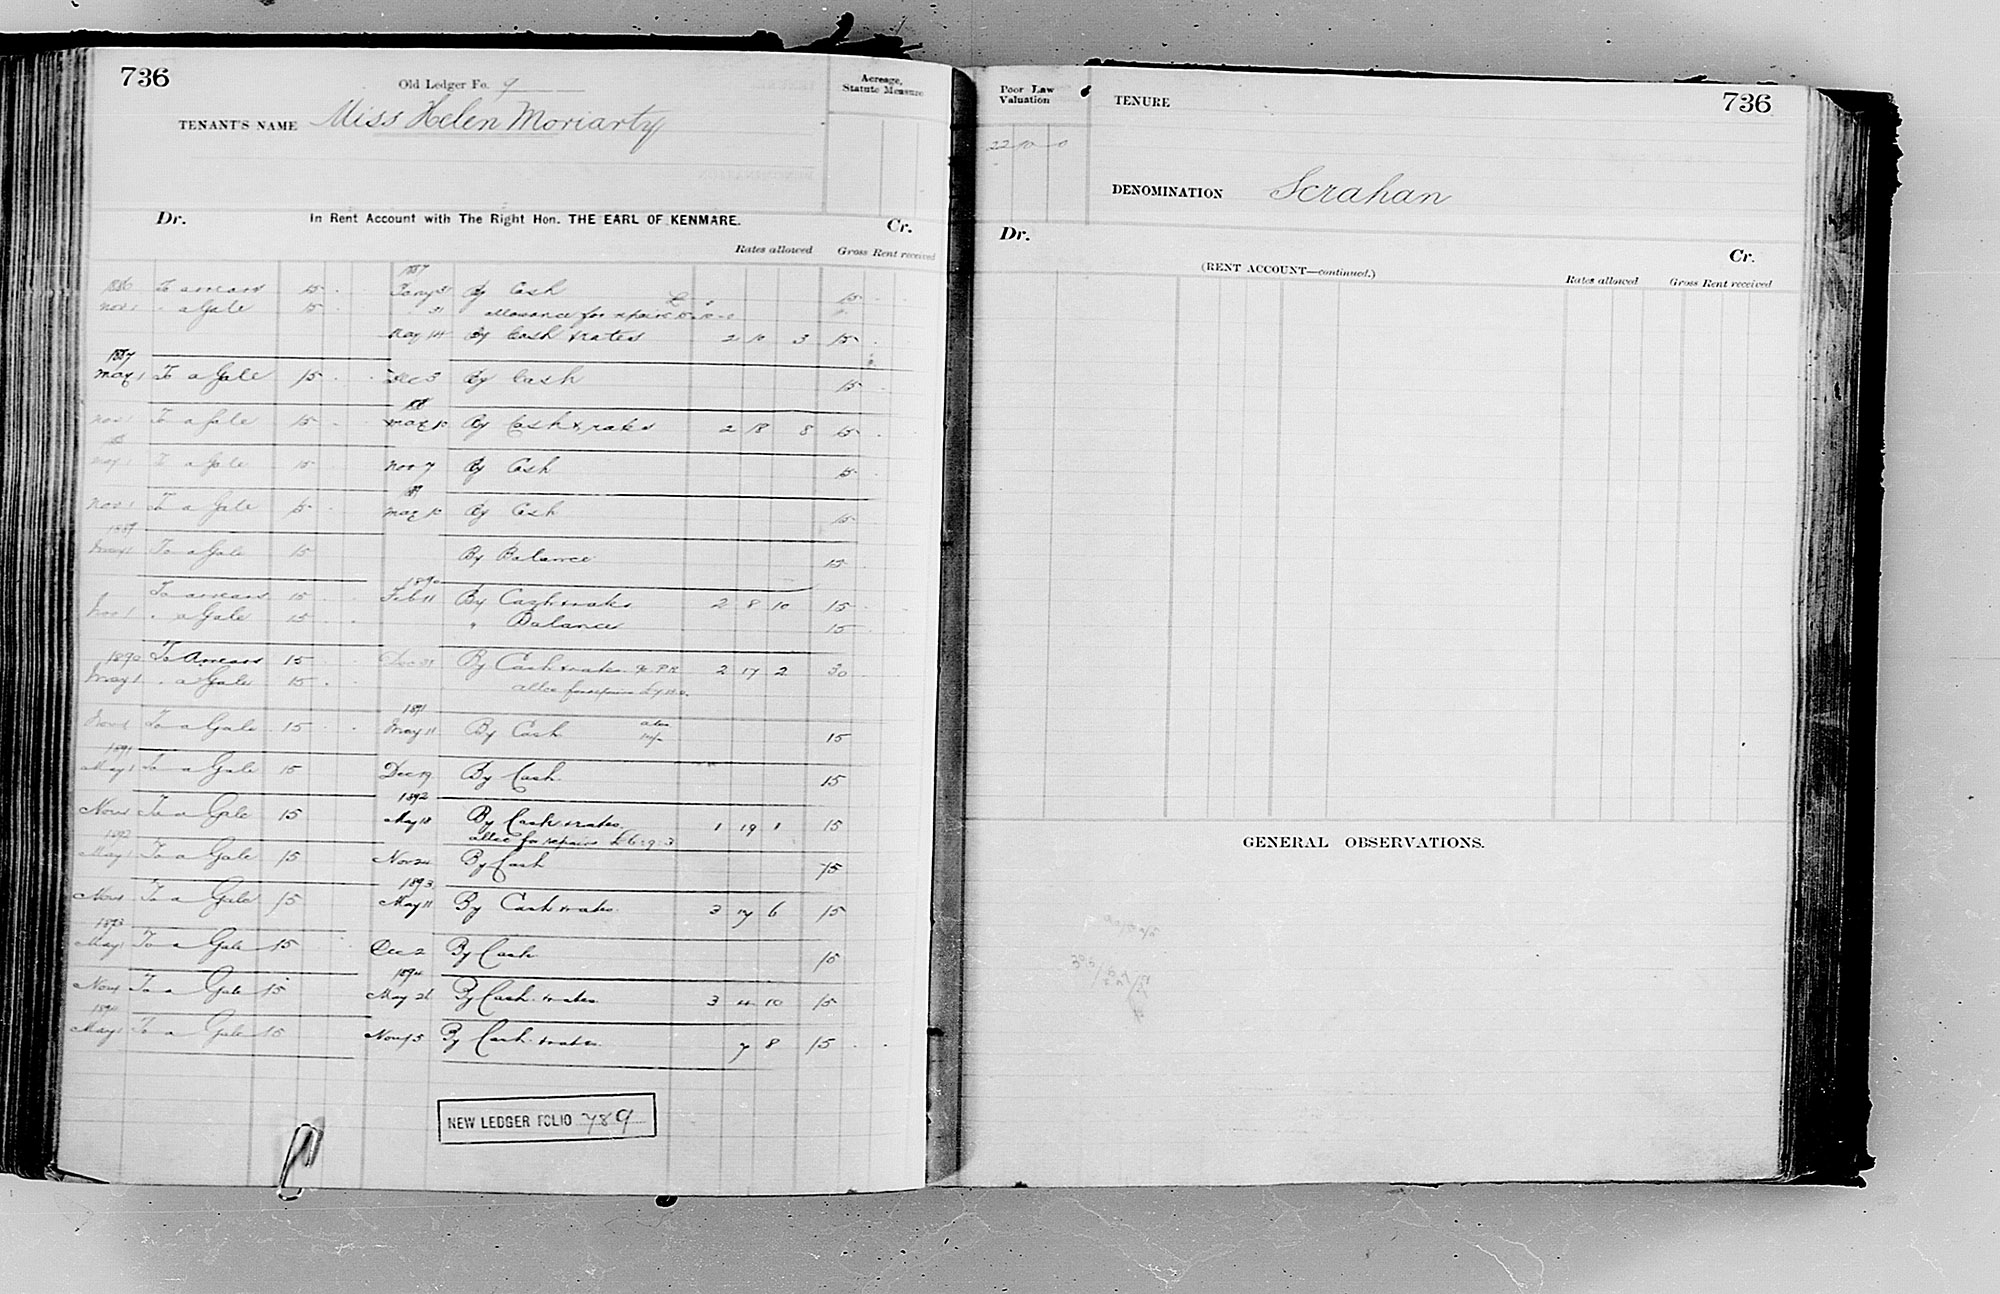 736
Old Ledger Fo. 9
Acreage,
Statute Measure
TENANT'S NAME Miss Helen Moriarty
Dr. In Rent Account with The Right Hon. THE EARL OF KENMARE. Cr.
Rates allowed Gross Rent received
1887
1886 To arrears 15 Jany 31 By Cash 15
Nov 1 " a Gale 15 31 allowance for repairs
May 14 By Cash & rates 2 10 3 15
1887
May 1 To a Gale 15 Dec 3 By Cash 15
188
Nov 1 To a Gale 15 May 10 By Cash & rates 2 18 8 15
88
May 1 To a Gale 15 Nov 7 By Cash 15
89
Nov 1 To a Gale 15 May 10 By Cash 15
1889
May 1 To a Gale 15 By Balance 15
1890
To arrears 15 Feb 11 By Cash & rates 2 8 10 15
Nov 1 " a Gale 15 " Balance 15
1890 To Arrears 15 Dec 31 By Cash & rates 2 17 2 30
May 1 " a Gale 15 allce for repairs
1891
Nov 1 To a Gale 15 May 11 By Cash 15
1891
May 1 To a Gale 15 Dec 19 By Cash 15
1892
Nov 1 To a Gale 15 May 18 By Cash & rates 1 19 1 15
allce for repairs £6:9:3
1892
May 1 To a Gale 15 Nov 24 By Cash 15
1893
Nov 1 To a Gale 15 May 11 By Cash & rates 3 17 6 15
1893
May 1 To a Gale 15 Dec 2 By Cash 15
1894
Nov 1 To a Gale 15 May 26 By Cash & rates 3 4 10 15
1894
May 1 To a Gale 15 Nov 15 By Cash & rates 7 8 15
NEW LEDGER FOLIO 789
Poor Law
Valuation
TENURE
736
22 10 0
DENOMINATION Scrahan
Dr.
(RENT ACCOUNT—continued.)
Cr.
Rates allowed Gross Rent received
GENERAL OBSERVATIONS.